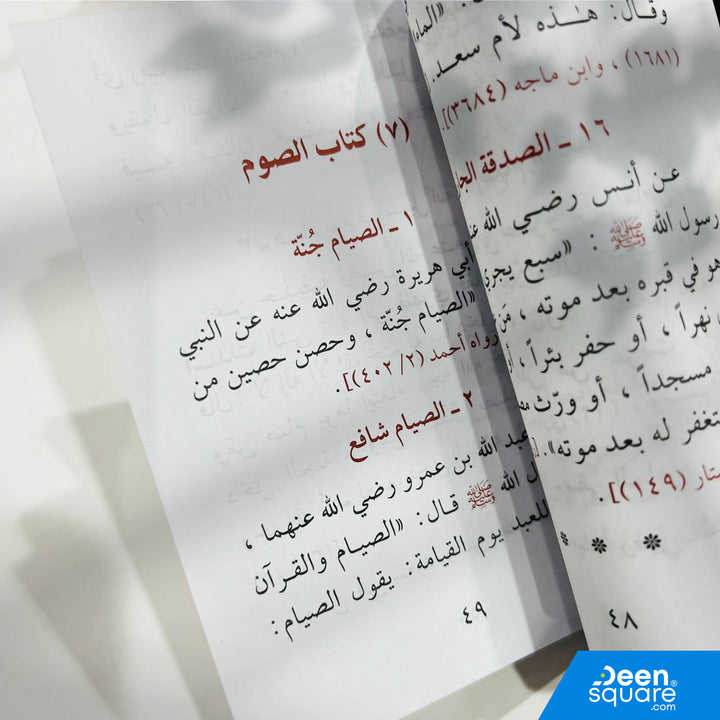 وقال: هٰذه لأم سعد.
(١٦٨١) ، وابن ماجه (٣٦٨٤)].
١٦ ـ الصدقة
عن أنس رضي الله
رسول الله ﷺ : «سبع يجري
هو في قبره بعد موته ، مَن
نهراً ، أو حفر بئراً ،
مسجداً ، أو ورّث
بعد موته».
(١٤٩)].
* * *
٤٨
(٧) كتاب الصوم
١ ـ الصيام جُنّة
أبي هريرة رضي الله عنه عن النبي
«الصيام جُنّة ، وحصن حصين من
رواه أحمد (٤٠٢/٢)].
٢ ـ الصيام شافع
عبد الله بن عمرو رضي الله عنهما ،
الله ﷺ قال: «الصيام والقرآن
للعبد يوم القيامة: يقول الصيام:
٤٩
Deen
square®
.com